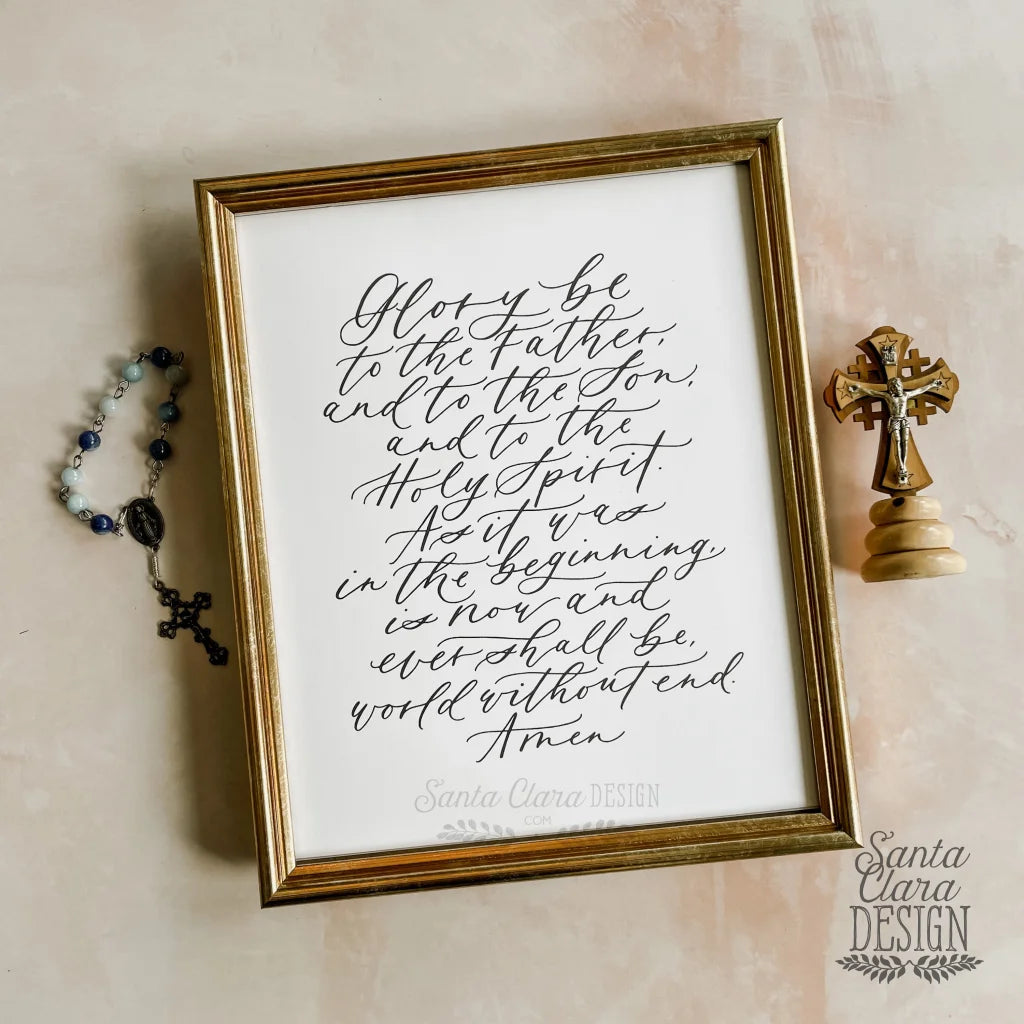 Glory be
to the Father,
and to the Son,
and to the
Holy Spirit.
As it was
in the beginning,
is now and
ever shall be,
world without end.
Amen
Santa Clara DESIGN
COM
Santa
Clara
DESIGN